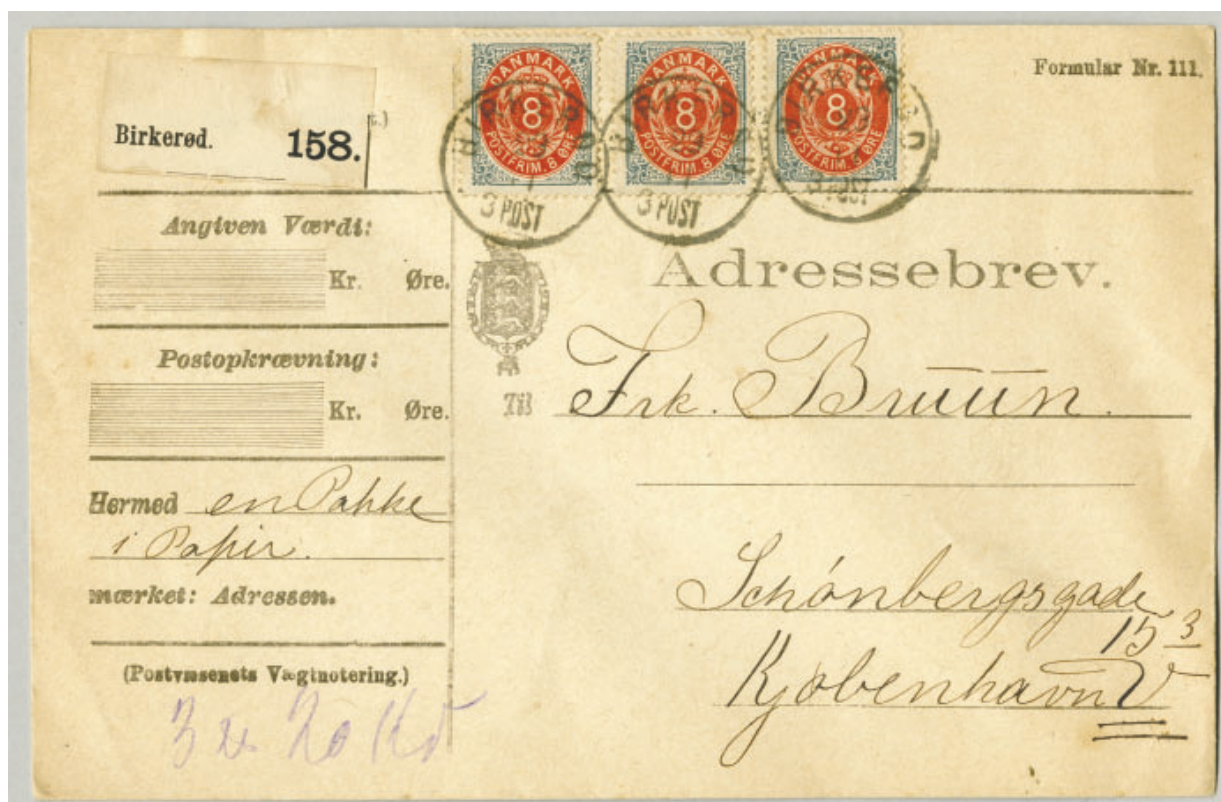 Formular Nr. 111.
Birkerød. 158.
DANMARK 8 POSTFRIM. 8 ØRE
DANMARK 8 POSTFRIM. 8 ØRE
DANMARK 8 POSTFRIM. 8 ØRE
BIRKERØD
3 POST
BIRKERØD
3 POST
BIRKERØD
3 POST
Angiven Værdi:
Kr. Øre.
Postopkrævning:
Kr. Øre.
Hermed en Pakke
i Papir.
mærket: Adressen.
(Postvæsenets Vægtnotering.)
Adressebrev.
Til Frk. Bruun.
Schönbergsgade
15 3
Kjøbenhavn V